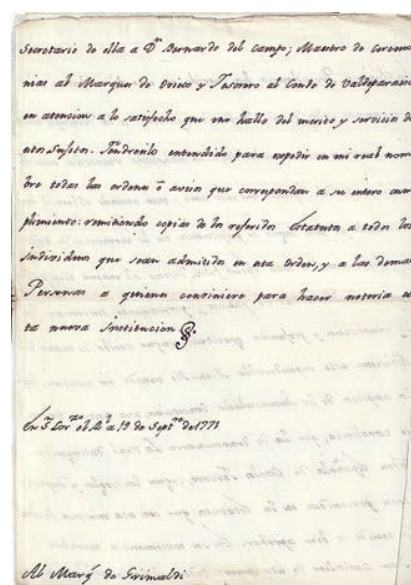 Secretario de ella a Dn Bernardo del Campo; Maestro de Ceremo
nias al Marques de Ovieco y Tesorero al Conde de Valdeparaiso
en atencion a lo satisfecho que me hallo del merito y servicios de
estos Sujetos. Tendreislo entendido para expedir en mi real nom
bre todas las ordenes ō avisos que correspondan a su entero cum
plimiento: remitiendo copias de los referidos Estatutos a todos los
individuos que sean admitidos en esta Orden, y a las demas
Personas a quienes conviniere para hacer notoria es
ta nueva Institucion
En Sn Lorzo el Rl a 19 de Septre de 1771
Al Marqs de Grimaldi